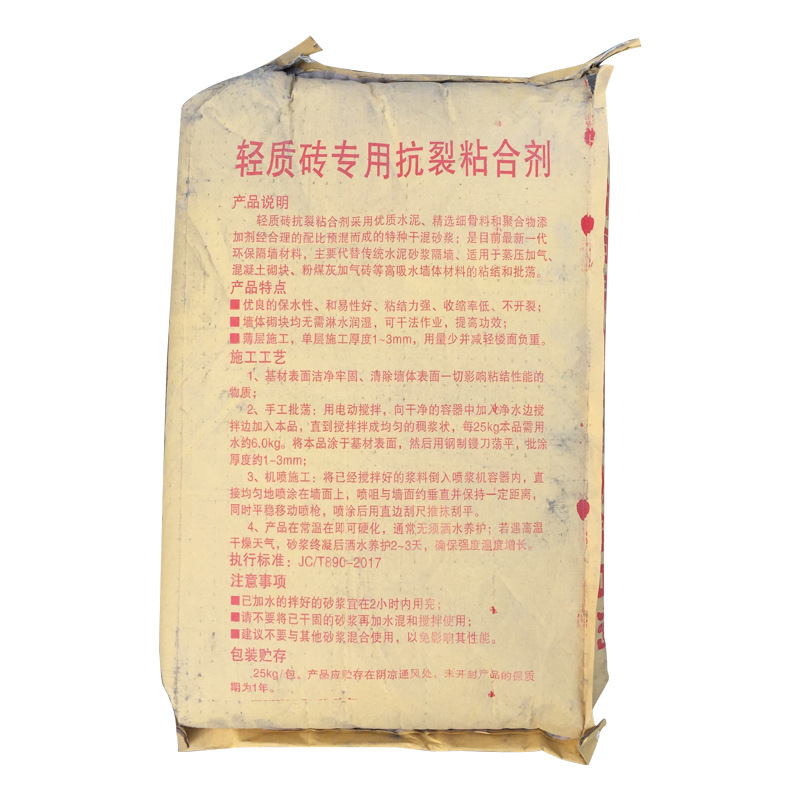 轻质砖专用抗裂粘合剂
产品说明
轻质砖抗裂粘合剂采用优质水泥、精选细骨料和聚合物添
加剂经合理的配比预混而成的特种干混砂浆；是目前最新一代
环保隔墙材料，主要代替传统水泥砂浆隔墙、适用于蒸压加气、
混凝土砌块、粉煤灰加气砖等高吸水墙体材料的粘结和批荡。
产品特点
■优良的保水性、和易性好、粘结力强、收缩率低、不开裂；
■墙体砌块均无需淋水润湿，可干法作业，提高功效；
■薄层施工，单层施工厚度1~3mm，用量少并减轻楼面负重。
施工工艺
1、基材表面洁净牢固、清除墙体表面一切影响粘结性能的
物质；
2、手工批荡：用电动搅拌，向干净的容器中加入净水边搅
拌边加入本品，直到搅拌拌成均匀的稠浆状，每25kg本品需用
水约6.0kg。将本品涂于基材表面，然后用钢制镘刀荡平，批涂
厚度约1-3mm；
3、机喷施工：将已经搅拌好的浆料倒入喷浆机容器内，直
接均匀地喷涂在墙面上，喷咀与墙面约垂直并保持一定距离，
同时平稳移动喷枪，喷涂后用直边刮尺推抹刮平。
4、产品在常温在即可硬化，通常无须洒水养护；若遇高温
干燥天气，砂浆终凝后洒水养护2~3天，确保强度温度增长。
执行标准：JC/T890-2017
注意事项
■已加水的拌好的砂浆宜在2小时内用完；
■请不要将已干固的砂浆再加水混和搅拌使用；
■建议不要与其他砂浆混合使用，以免影响其性能。
包装贮存
25kg/包。产品应贮存在阴凉通风处，未开封产品的保质
期为1年。